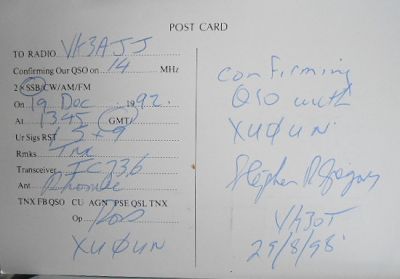 POST CARD
TO RADIO VK3AJJ
Confirming Our QSO on 14 MHz
2×SSB/CW/AM/FM
On 19 Dec 1992.
At 1345 GMT/
Ur Sigs RST 5 + 9
Rmks Tnx
Transceiver
Ant Rhombic
TNX FB QSO CU AGN PSE QSL TNX
Op
XUØUN
confirming
QSO with
XUØUN
Stephen
VK3OT
29/8/98